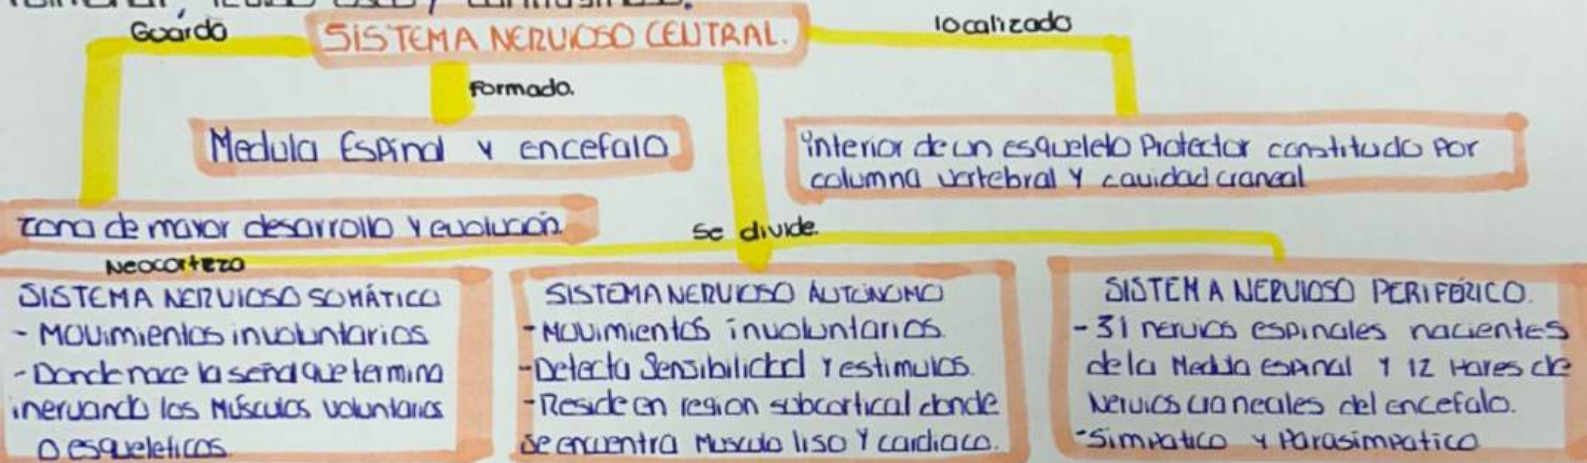 Guarda
SISTEMA NERVIOSO CENTRAL.
localizado
Formado.
Medula Espinal y encefalo
interior de un esqueleto Protector constituido por
columna vertebral y cavidad craneal
zona de mayor desarrollo y evolución.
Se divide.
Neocorteza
SISTEMA NERVIOSO SOMÁTICO
- Movimientos involuntarios
- Donde nace la señal que termina
inervando los Músculos voluntarios
o esqueleticos.
SISTEMA NERVIOSO AUTÓNOMO
- Movimientos involuntarios.
- Detecta Sensibilidad y estimulos.
- Reside en region subcortical donde
se encuentra Musculo liso y cardiaco.
SISTEMA NERVIOSO PERIFÉRICO.
- 31 nervios espinales nacientes
de la Medula espinal y 12 Pares de
Nervios craneales del encefalo.
- Simpatico y Parasimpatico